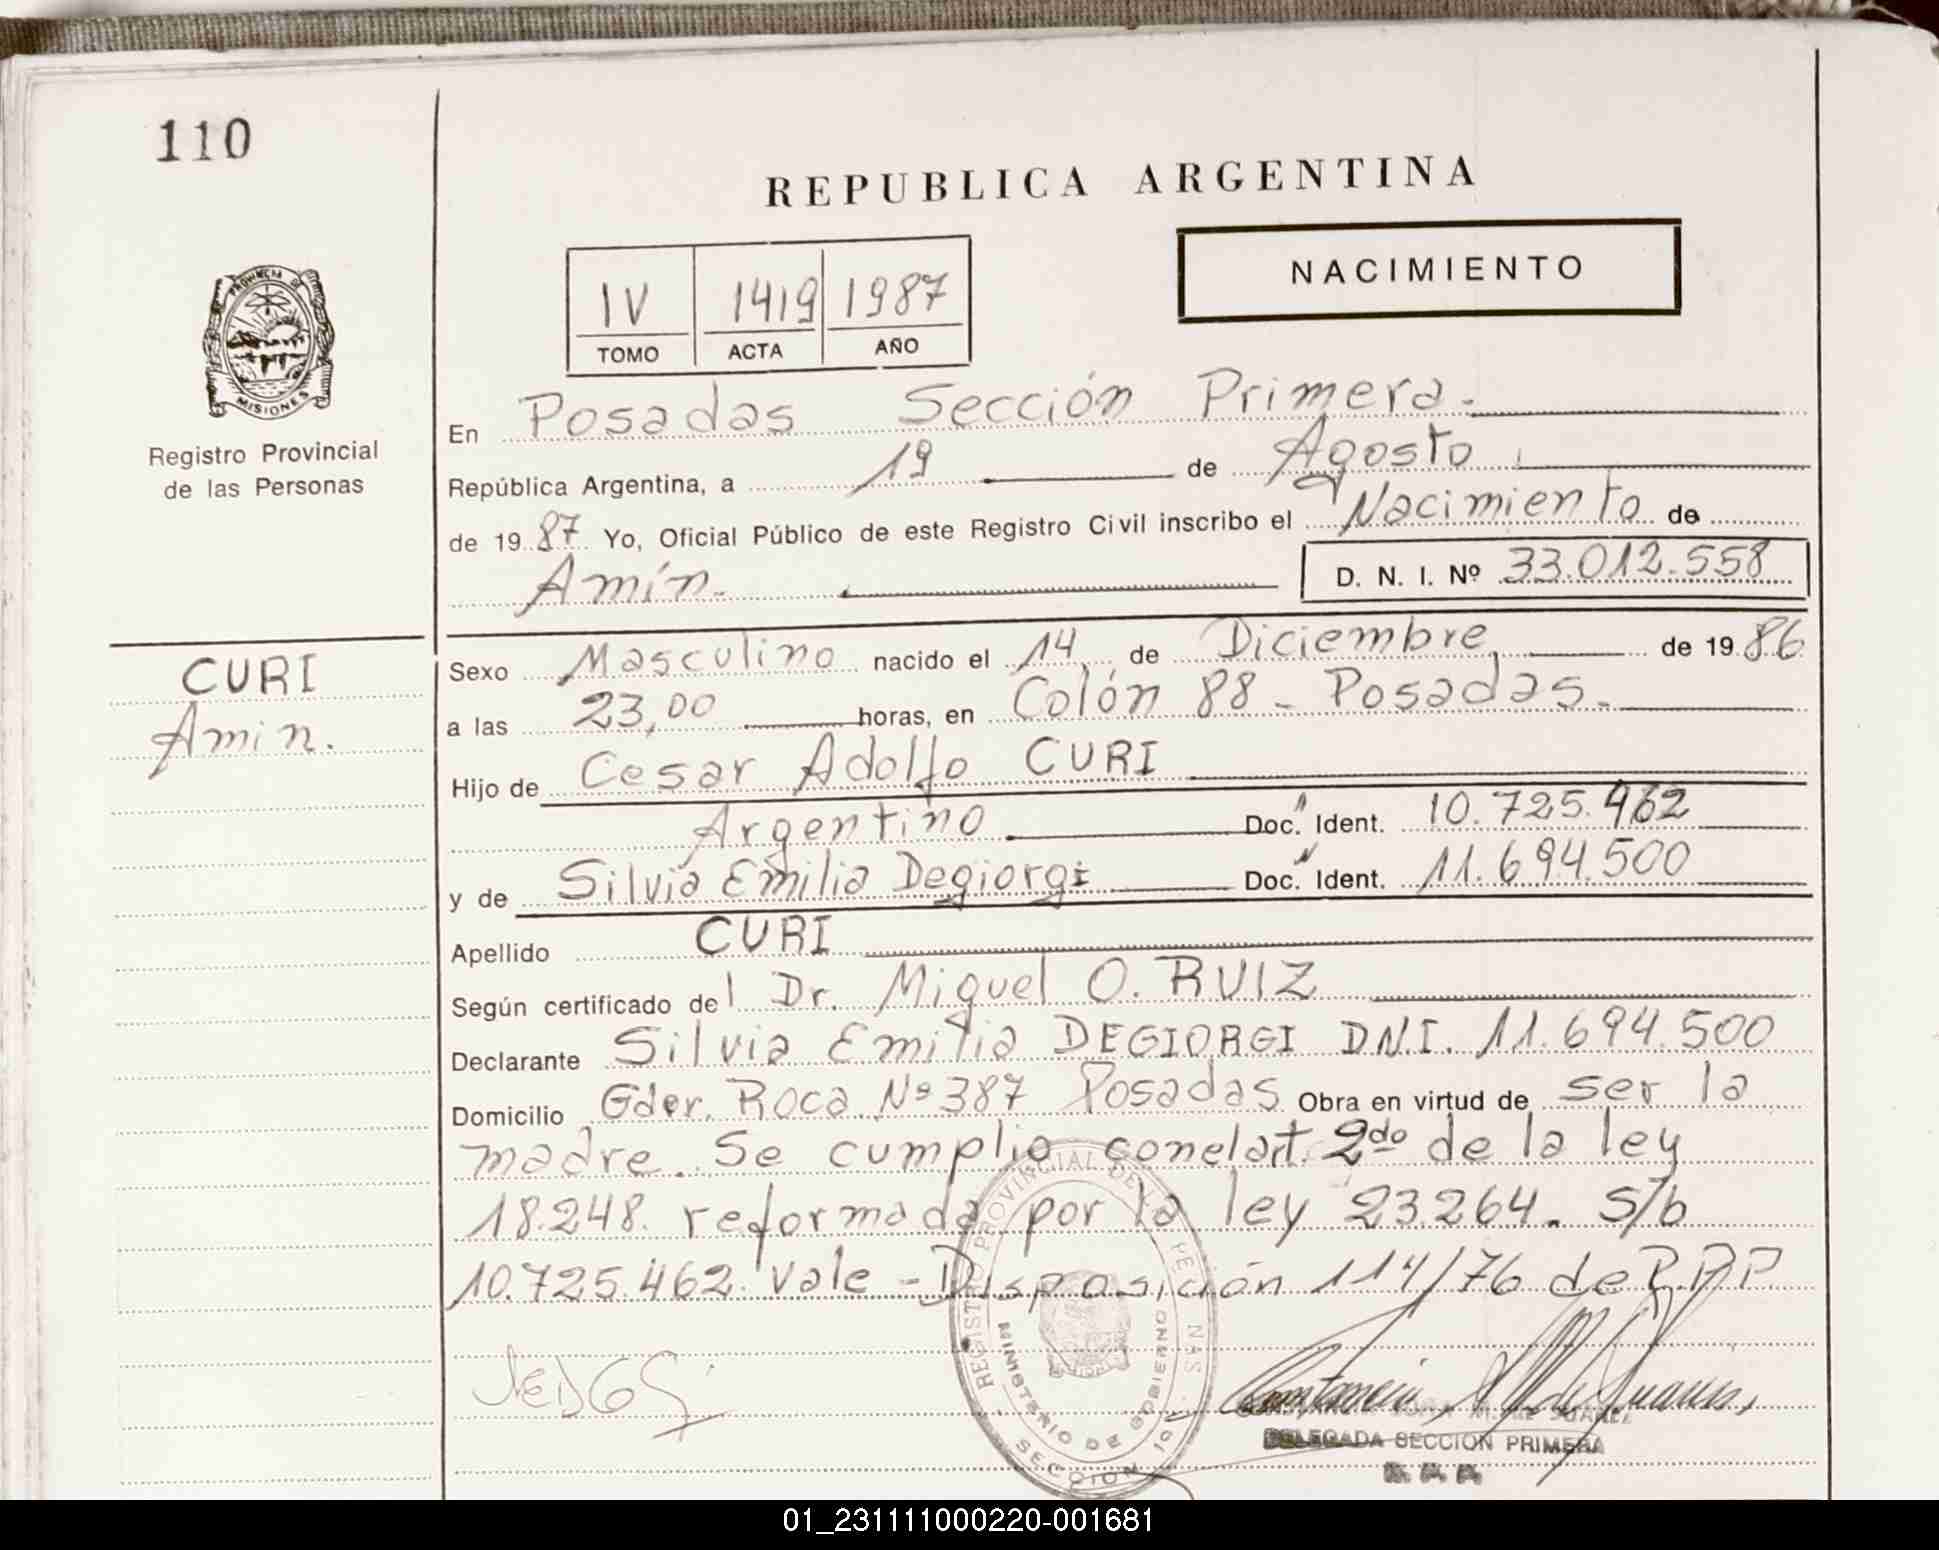 110
REPUBLICA ARGENTINA
NACIMIENTO
IV 1419 1987
TOMO ACTA AÑO
PROVINCIA DE
MISIONES
Registro Provincial
de las Personas
En Posadas Sección Primera.
República Argentina, a 19 de Agosto
de 1987 Yo, Oficial Público de este Registro Civil inscribo el Nacimiento de
Amín. D. N. I. Nº 33.012.558
CURI
Amin.
Sexo Masculino nacido el 14 de Diciembre, de 1986
a las 23,00 horas, en Colón 88 - Posadas.
Hijo de Cesar Adolfo CURI
Argentino Doc. Ident. 10.725.462
y de Silvia Emilia Degiorgi Doc. Ident. 11.694.500
Apellido CURI
Según certificado del Dr. Miguel O. RUIZ
Declarante Silvia Emilia DEGIORGI D.N.I. 11.694.500
Domicilio Gder. Roca Nº 387 Posadas Obra en virtud de ser la
madre. Se cumplio con el art. 2do de la ley
18.248. reformada por la ley 23.264. S/b
10.725.462. Vale - Disposición 114/76 de R.P.P.
REGISTRO PROVINCIAL DE LAS PERSONAS
MINISTERIO DE GOBIERNO
SECCION 1
DELEGADA SECCION PRIMERA
01_231111000220-001681